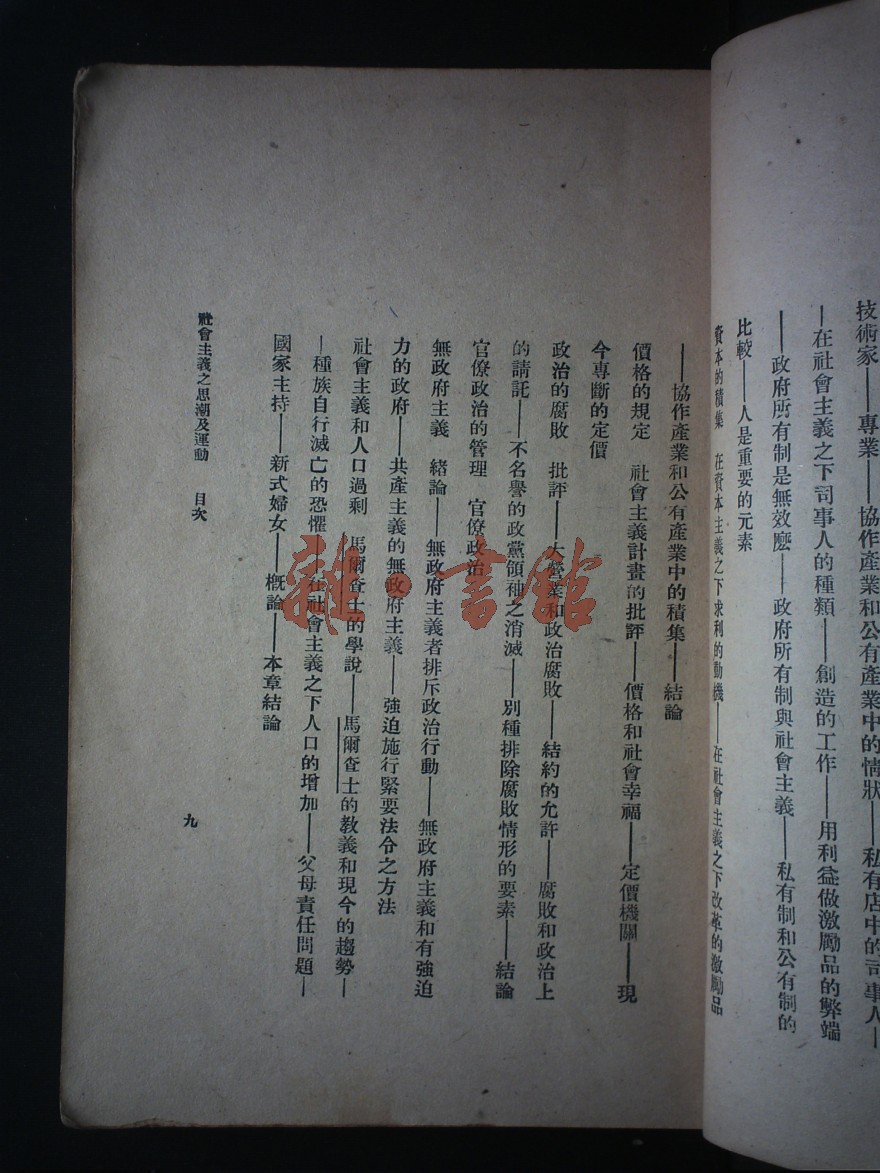 技術家——專業——協作產業和公有產業中的情狀——私有店中的司事人—
—在社會主義之下司事人的種類——創造的工作——用利益做激勵品的弊端
——政府所有制是無效麽——政府所有制與社會主義——私有制和公有制的
比較——人是重要的元素
資本的積集　在資本主義之下求利的動機——在社會主義之下改革的激勵品
——協作產業和公有產業中的積集——結論
價格的規定　社會主義計畫的批評——價格和社會幸福——定價機關——現
今專斷的定價
政治的腐敗　批評——大營業和政治腐敗——結約的允許——腐敗和政治上
的請託——不名譽的政黨領袖之消滅——別種排除腐敗情形的要素——結論
官僚政治的管理　官僚政治
無政府主義　緒論——無政府主義者排斥政治行動——無政府主義和有強迫
力的政府——共產主義的無政府主義——強迫施行緊要法令之方法
社會主義和人口過剩　馬爾查士的學說——馬爾查士的教義和現今的趨勢—
—種族自行滅亡的恐懼——在社會主義之下人口的增加——父母責任問題—
國家主持——新式婦女——概論——本章結論
社會主義之思潮及運動　目次
九
雜·書館